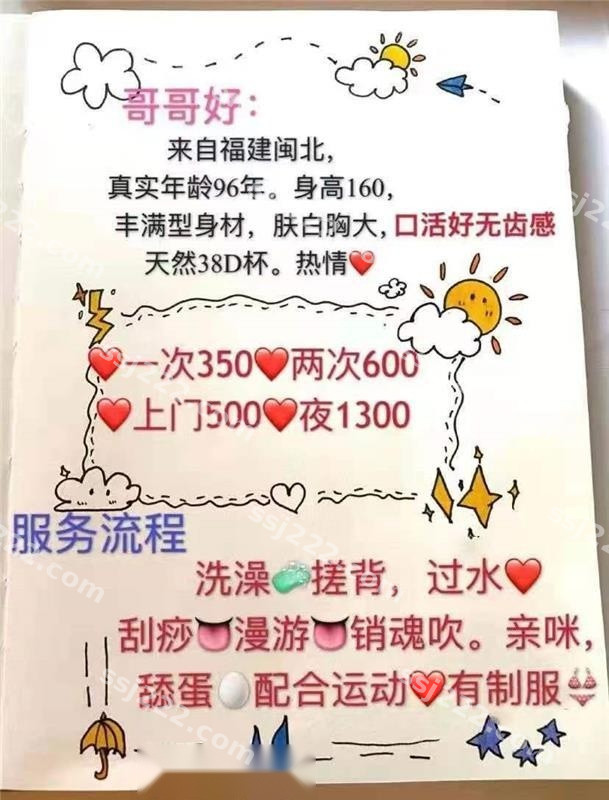 哥哥好：
来自福建闽北，
真实年龄96年。身高160，
丰满型身材，肤白胸大，口活好无齿感
天然38D杯。热情❤️
❤️一次350❤️两次600
❤️上门500❤️夜1300
服务流程
洗澡🧼搓背，过水❤️
刮痧👅漫游👅销魂吹。亲咪，
舔蛋🥚配合运动❤️有制服👙
ssj222.com